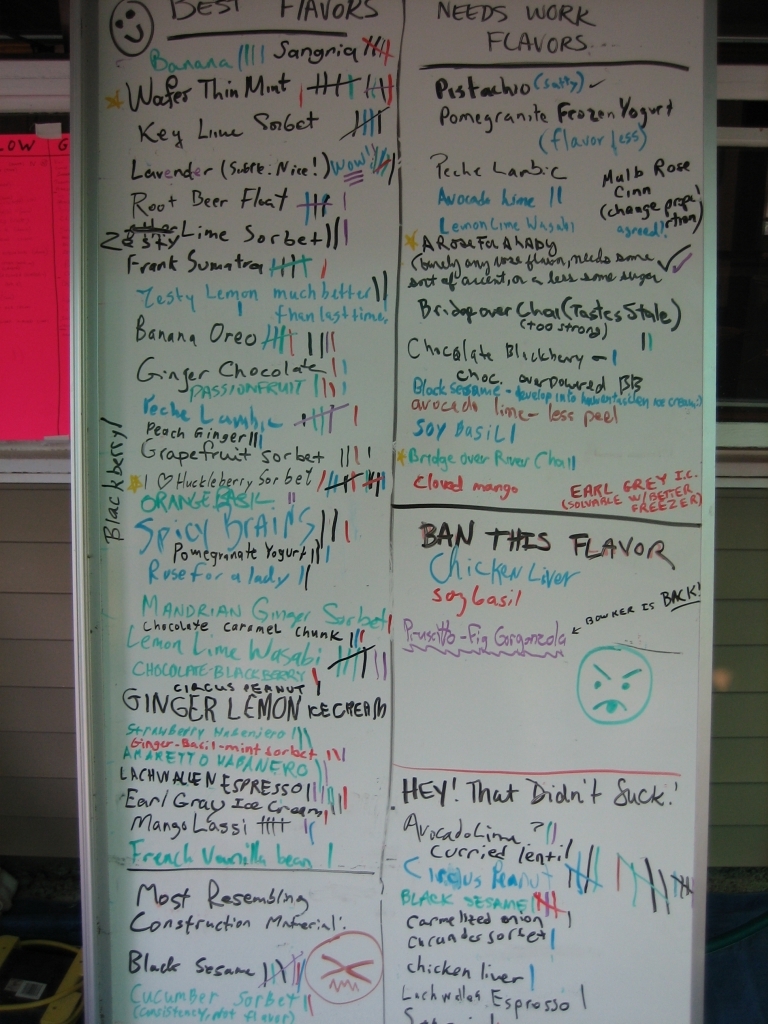 BEST FLAVORS
Banana
Sangria
Wafer Thin Mint
Key Lime Sorbet
Lavender (Subtle. Nice!) Wow!
Root Beer Float
Zesty Lime Sorbet
Frank Sumatra
Zesty Lemon much better
than last time.
Banana Oreo
Ginger Chocolate
PASSIONFRUIT
Peche Lambic
Peach Ginger
Grapefruit sorbet
I ♡ Huckleberry Sorbet
Blackberry/
ORANGE BASIL
Spicy BrAiNS
Pomegranate Yogurt
Rose for a lady
MANDRIAN Ginger Sorbet
chocolate caramel chunk
Lemon Lime Wasabi
CHOCOLATE-BLACKBERRY
CIRCUS PEANUT
GINGER LEMON ICE CREAM
Strawberry Habenjero
Ginger-Basil-mint sorbet
AMARETTO HABANERO
LACHWALLEN ESPRESSO
Earl Gray Ice Cream
Mango Lassi
French Vanilla bean
Most Resembling
Construction Material:
Black Sesame
Cucumber Sorbet
(consistency, not flavor)
NEEDS WORK
FLAVORS
Pistachio (salty)
Pomegranite Frozen Yogurt
(flavorless)
Peche Lambic
Mulb Rose
Cinn
(change propo
rtion)
agreed!
Avocado Lime
Lemon Lime Wasabi
A ROSE FOR A LADY
(barely any rose flavor, needs some
sort of accent, or a less some sugar
Bridge over Chai (Tastes Stale)
(too strong)
Chocolate Blickberry -
choc. overpowered BB
Black sesame - develop into
avocado lime - less peel
SOY BASIL
Bridge over River Chai
Cloud mango
EARL GREY I.C.
(SOLVABLE W/BETTER
FREEZER)
BAN THIS FLAVOR
Chicken Liver
soy basil
Pruscitto-Fig Gorgonzola
← BOWKER IS BACK!
HEY! That Didn't Suck!
Avocado Lime ?
Curried lentil
Circus Peanut
BLACK SESAME
carmelized onion
sorbet
chicken liver
Espresso
LOW